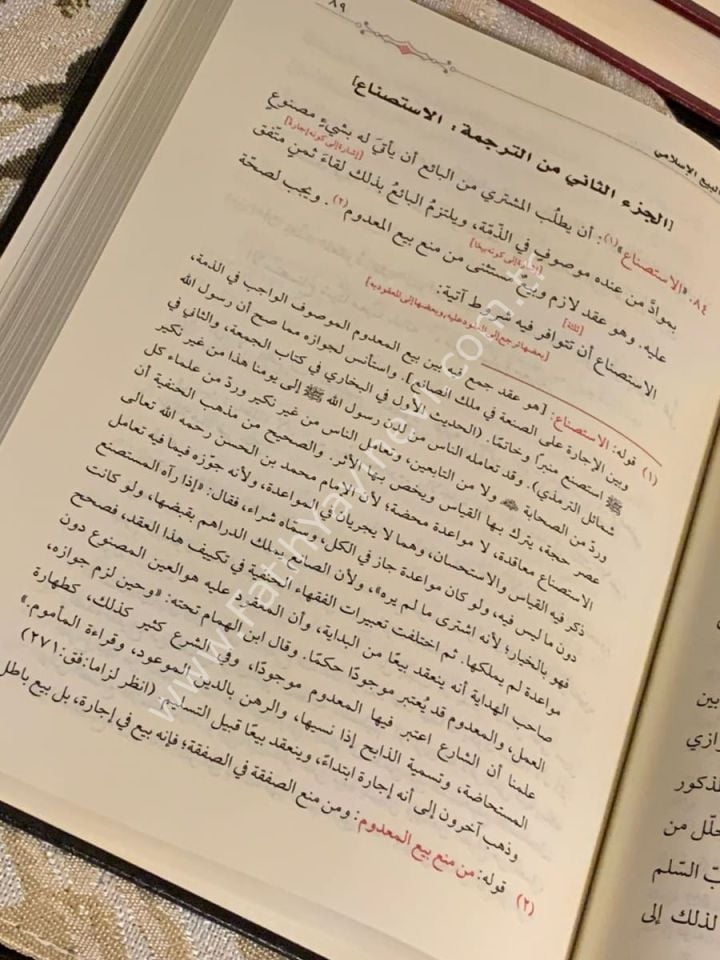 ٨٩
البيع الإسلامي
[الجزء الثاني من الترجمة: الاستصناع]
٨٤. «الاستصناع»(١): أن يطلُب المشتري من البائع أن يأتيَ له بشيءٍ مصنوع
[إشارة إلى كونه إجارة]
بموادَّ من عنده موصوفٍ في الذّمّة، ويلتزمُ البائعُ بذلك لقاءَ ثمنٍ متّفق
عليه. وهو عقد لازم وبيعٌ مستثنى من منع بيع المعدوم(٢). ويجب لصحّة
[إشارة إلى كونه بيعًا]
الاستصناع أن تتوافر فيه شروط آتية:
[ثلاثة]
[بعضها ترجع إلى المعقود عليه، وبعضها إلى المعقود به]
(١) قوله: الاستصناع: [هو عقد جمع فيه بين بيع المعدوم الموصوف الواجب في الذمة،
وبين الإجارة على الصنعة في ملك الصانع]. واستأنس لجوازه مما صح أن رسول الله
ﷺ استصنع منبرا وخاتمًا. (الحديث الأول في البخاري في كتاب الجمعة، والثاني في
شمائل الترمذي). وقد تعامله الناس من لدن رسول الله ﷺ إلى يومنا هذا من غير نكير
وردّ من الصحابة ولا من التابعين، وتعامل الناس من غير نكير وردّ من علماء كل
عصر حجة، يترك بها القياس ويخص بها الأثر. والصحيح من مذهب الحنفية أن
الاستصناع معاقدة، لا مواعدة محضة؛ لأن الإمام محمد بن الحسن رحمه الله تعالى
ذكر فيه القياس والاستحسان، وهما لا يجريان في المواعدة، ولأنه جوّزه فيما فيه تعامل
دون ما ليس فيه، ولو كان مواعدة جاز في الكل، وسمّاه شراء، فقال: «إذا رآه المستصنع
فهو بالخيار؛ لأنه اشترى ما لم يره»، ولأن الصانع يملك الدراهم بقبضها، ولو كانت
مواعدة لم يملكها. ثم اختلفت تعبيرات الفقهاء الحنفية في تكييف هذا العقد، فصحح
صاحب الهداية أنه ينعقد بيعًا من البداية، وأن المعقود عليه هو العين المصنوع دون
العمل، والمعدوم قد يُعتبر موجودًا حكمًا. وقال ابن الهمام تحته: «وحين لزم جوازه،
علمنا أن الشارع اعتبر فيها المعدوم موجودًا، وفي الشرع كثير كذلك، كطهارة
المستحاضة، وتسمية الذابح إذا نسيها، والرهن بالدين الموعود، وقراءة المأموم.»
وذهب آخرون إلى أنه إجارة ابتداءً، وينعقد بيعًا قبيل التسليم. (انظر لزاما: فق: ٢٧١)
(٢) قوله: من منع بيع المعدوم: ومن منع الصفقة في الصفقة؛ فإنه بيع في إجارة، بل بيع باطل
بين
رازي
لذكور
حلّل من
بّ السّلم
لذلك إلى
www.FatihYayinevi.com.tr